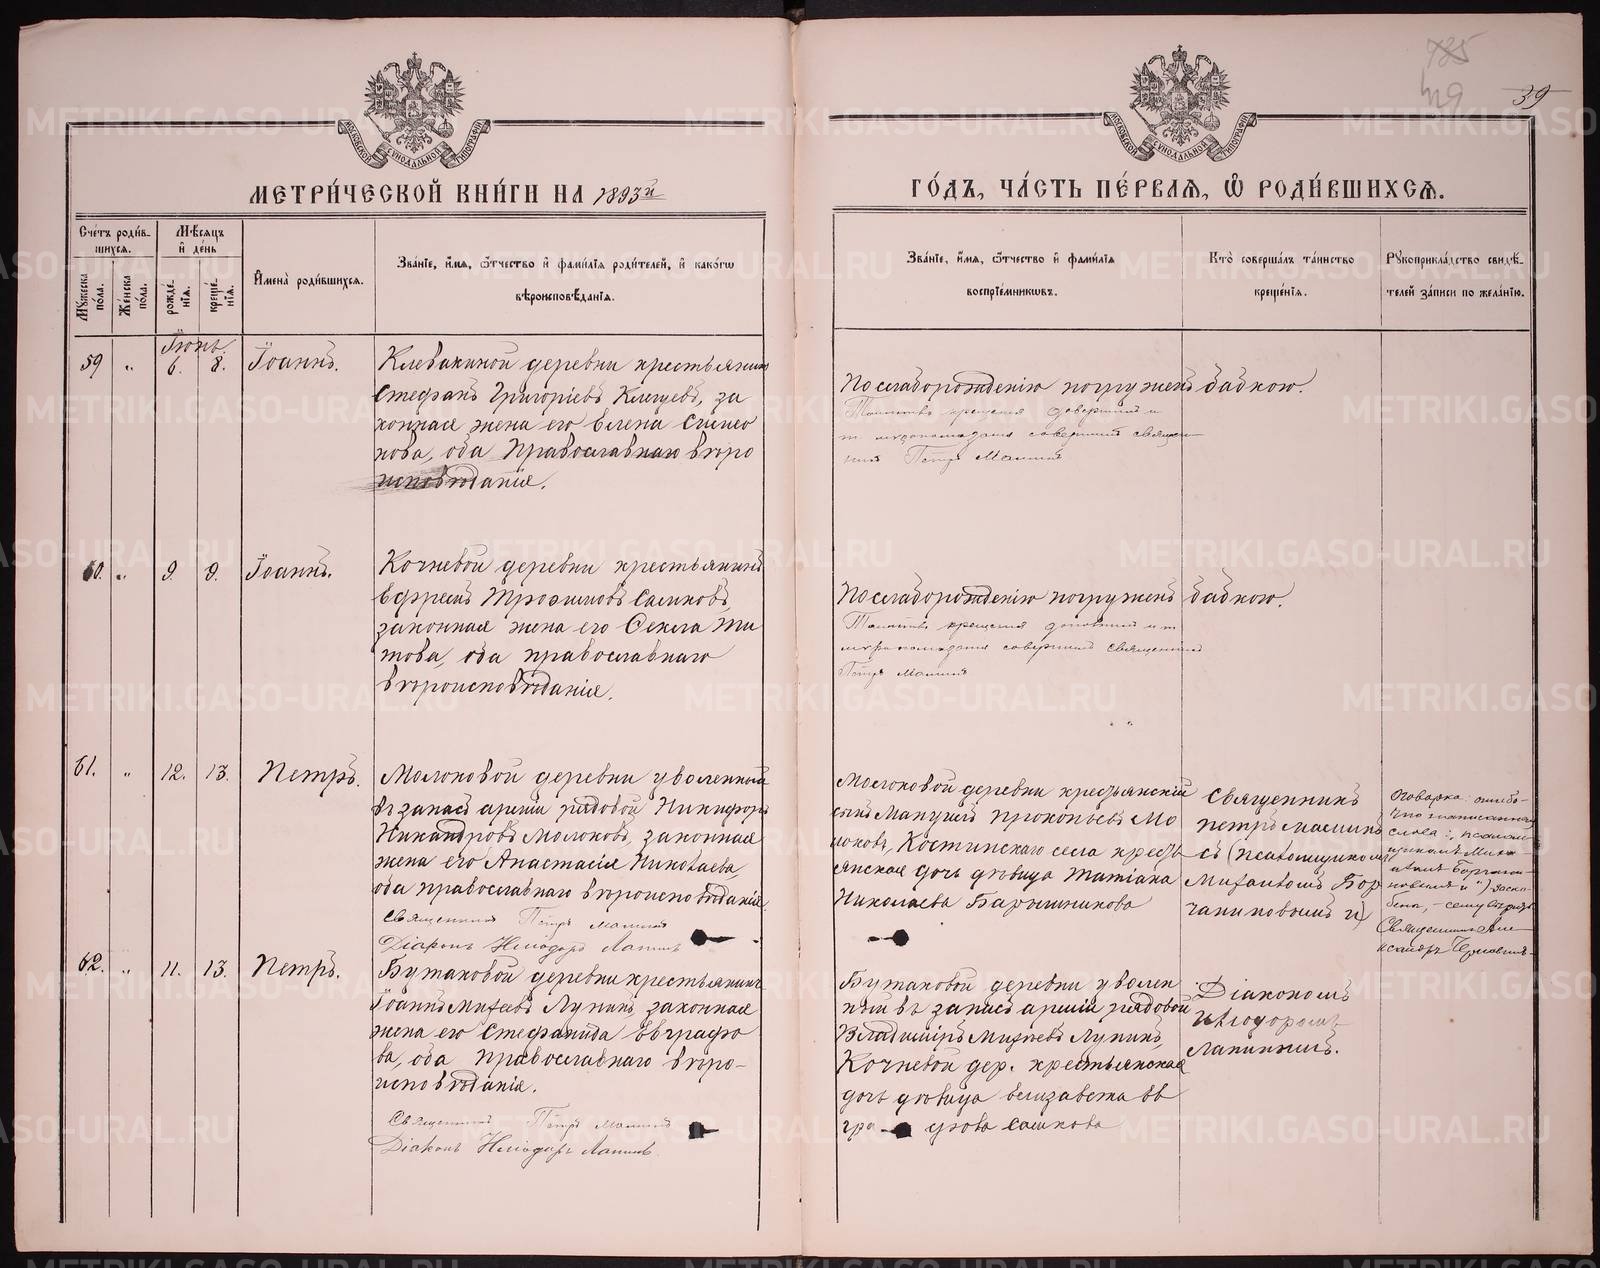 785
39
МЕТРИ́ЧЕСКОЙ КНИ́ГИ НА 1893й
ГО́ДЪ, ЧА́СТЬ ПЕ́РВАѦ, Ѡ҆ РОДИ́ВШИХСѦ.
МОСКОВСКОЙ СѴНОДАЛЬНОЙ ТИПОГРАФІИ
МОСКОВСКОЙ СѴНОДАЛЬНОЙ ТИПОГРАФІИ
Сче́тъ роди́в-
шихсѧ.
Мꙋ́жеска по́ла.
Же́нска по́ла.
Мѣ́сѧцъ
и҆ де́нь
рожде́-
нїѧ.
креще́-
нїѧ.
И҆мена̀ роди́вшихсѧ.
Зва́нїе, и҆́мѧ, ѻ҆́тчество и҆ фами́лїѧ роди́телей, и҆ како́гѡ
вѣроисповѣ́данїѧ.
Зва́нїе, и҆́мѧ, ѻ҆́тчество и҆ фами́лїѧ
воспрїе́мникѡвъ.
Кто̀ соверша́лъ та́инство
креще́нїѧ.
Рꙋкоприкла́дство свидѣ́-
телей за́писи по жела́нїю.
Іюнь.
59 „ 6. 8. Іоаннъ.
Клевакиной деревни крестьянинъ
Стефанъ Григоріевъ Клещевъ, за
конная жена его Елена Симео
нова, оба Православнаго вѣро
исповѣданія.
По слаборожденію погруженъ бабкою.
Таинство крещенія довершилъ и
мѵропомазанія совершилъ священ
никъ Петръ Маминъ
60. „ 9. 9. Іоаннъ.
Кочневой деревни крестьянинъ
Ефремъ Трофимовъ Сашковъ,
законная жена его Ѳекла Ти
това, оба православнаго
вѣроисповѣданія.
По слаборожденію погруженъ бабкою.
Таинство крещенія дополнилъ и
мѵропомазанія совершилъ священникъ
Петръ Маминъ
61. „ 12. 13. Петръ.
Молоковой деревни уволенный
въ запасъ арміи рядовой Никифоръ
Никандровъ Молоковъ, законная
жена его Анастасія Николаева,
оба православнаго вѣроисповѣданія.
Священникъ Петръ Маминъ
Діаконъ Иліодоръ Лапинъ
Молоковой деревни крестьянскій
сынъ Мануилъ Прокопьевъ Мо
локовъ, Костинскаго села кресть
янская дочь дѣвица Татіана
Николаева Барышникова
Священникъ
Петръ Маминъ
съ (псаломщикомъ
Михаиломъ Бор
чаниновымъ и)
Оговорка: ошибо-
чно написанныя
слова: „псалом-
щикомъ Миха-
иломъ Борчани-
новымъ и“)
Священникъ Але-
ксандръ
62. „ 11. 13. Петръ.
Бутаковой деревни крестьянинъ
Іоаннъ Михеевъ Лупинъ, законная
жена его Стефанида Евграфо
ва, оба православнаго вѣро-
исповѣданія.
Священникъ Петръ Маминъ
Діаконъ Иліодоръ Лапинъ.
Бутаковой деревни уволен
ный въ запасъ арміи рядовой
Владиміръ Михеевъ Лупинъ,
Кочневой дер. крестьянская
дочь дѣвица Елизавета Ев
гра фова Сашкова
Діакономъ
Иліодоромъ
Лапинымъ.
METRIKI.GASO-URAL.RU